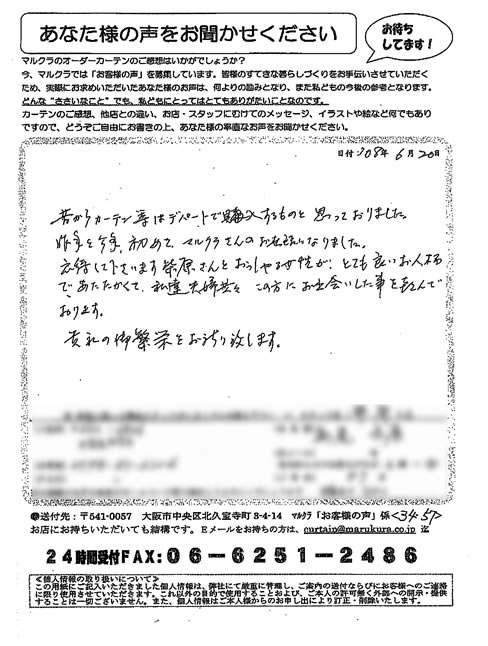 あなた様の声をお聞かせください
お待ち
してます!
マルクラのオーダーカーテンのご感想はいかがでしょうか?
今、マルクラでは「お客様の声」を募集しています。皆様のすてきな暮らしづくりをお手伝いさせていただく
ため、実際にお求めいただいたあなた様のお声は、何よりの励みとなり、また私どもの今後の参考となります。
どんな“ささいなこと”でも、私どもにとってはとてもありがたいことなのです。
カーテンのご感想、他店との違い、お店・スタッフにむけてのメッセージ、イラストや絵など何でもあり
ですので、どうぞご自由にお書きの上、あなた様の率直なお声をお聞かせください。
日付:'08年6月20日
昔からカーテン等はデパートで購入するものと思っておりました。
昨年と今年、初めて、マルクラさんのお世話になりました。
応待して下さいます栄原さんとおっしゃる女性が、とても良いお人柄
であたたかくて、私達夫婦共々この方にお出会いした事を喜んで
おります。
貴社の御繁栄をお祈り致します。
●送付先:〒541-0057 大阪市中央区北久宝寺町3-4-14 マルクラ「お客様の声」係<3457>
お店にお持ちいただいても結構です。Eメールをお持ちの方は、curtain@marukura.co.jp 迄
24時間受付FAX:06-6251-2486
≪個人情報の取り扱いについて≫
この用紙にご記入いただきました個人情報は、弊社にて厳重に管理し、ご案内の送付ならびにお客様へのご連絡
に限り使用させていただきます。これ以外の目的で使用することおよび、ご本人の許可無く外部への開示・提供
することは一切ございません。また、個人情報はご本人様からのお申し出により訂正・削除いたします。